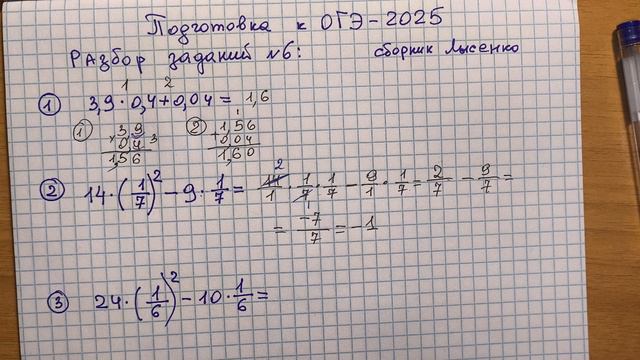 Подготовка к ОГЭ-2025
Разбор заданий №6: сборник Лысенко
1 2
① 3,9 · 0,4 + 0,04 = 1,6
① 3,9 × 0,4 3 1,56 ② 1 1,56 + 0,04 1,60
② 14 · (1/7)² - 9 · 1/7 = 14/1 · 1/7 · 1/7 - 9/1 · 1/7 = 2/7 - 9/7 =
= -7/7 = -1
③ 24 · (1/6)² - 10 · 1/6 =